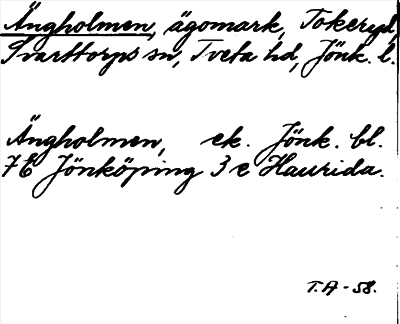 Ängholmen, ägomark, Tokeryd,
Svarttorps sn, Tveta hd, Jönk. l.
Ängholmen, ek. Jönk. bl.
7E Jönköping 3 e Haurida.
T.A-58.